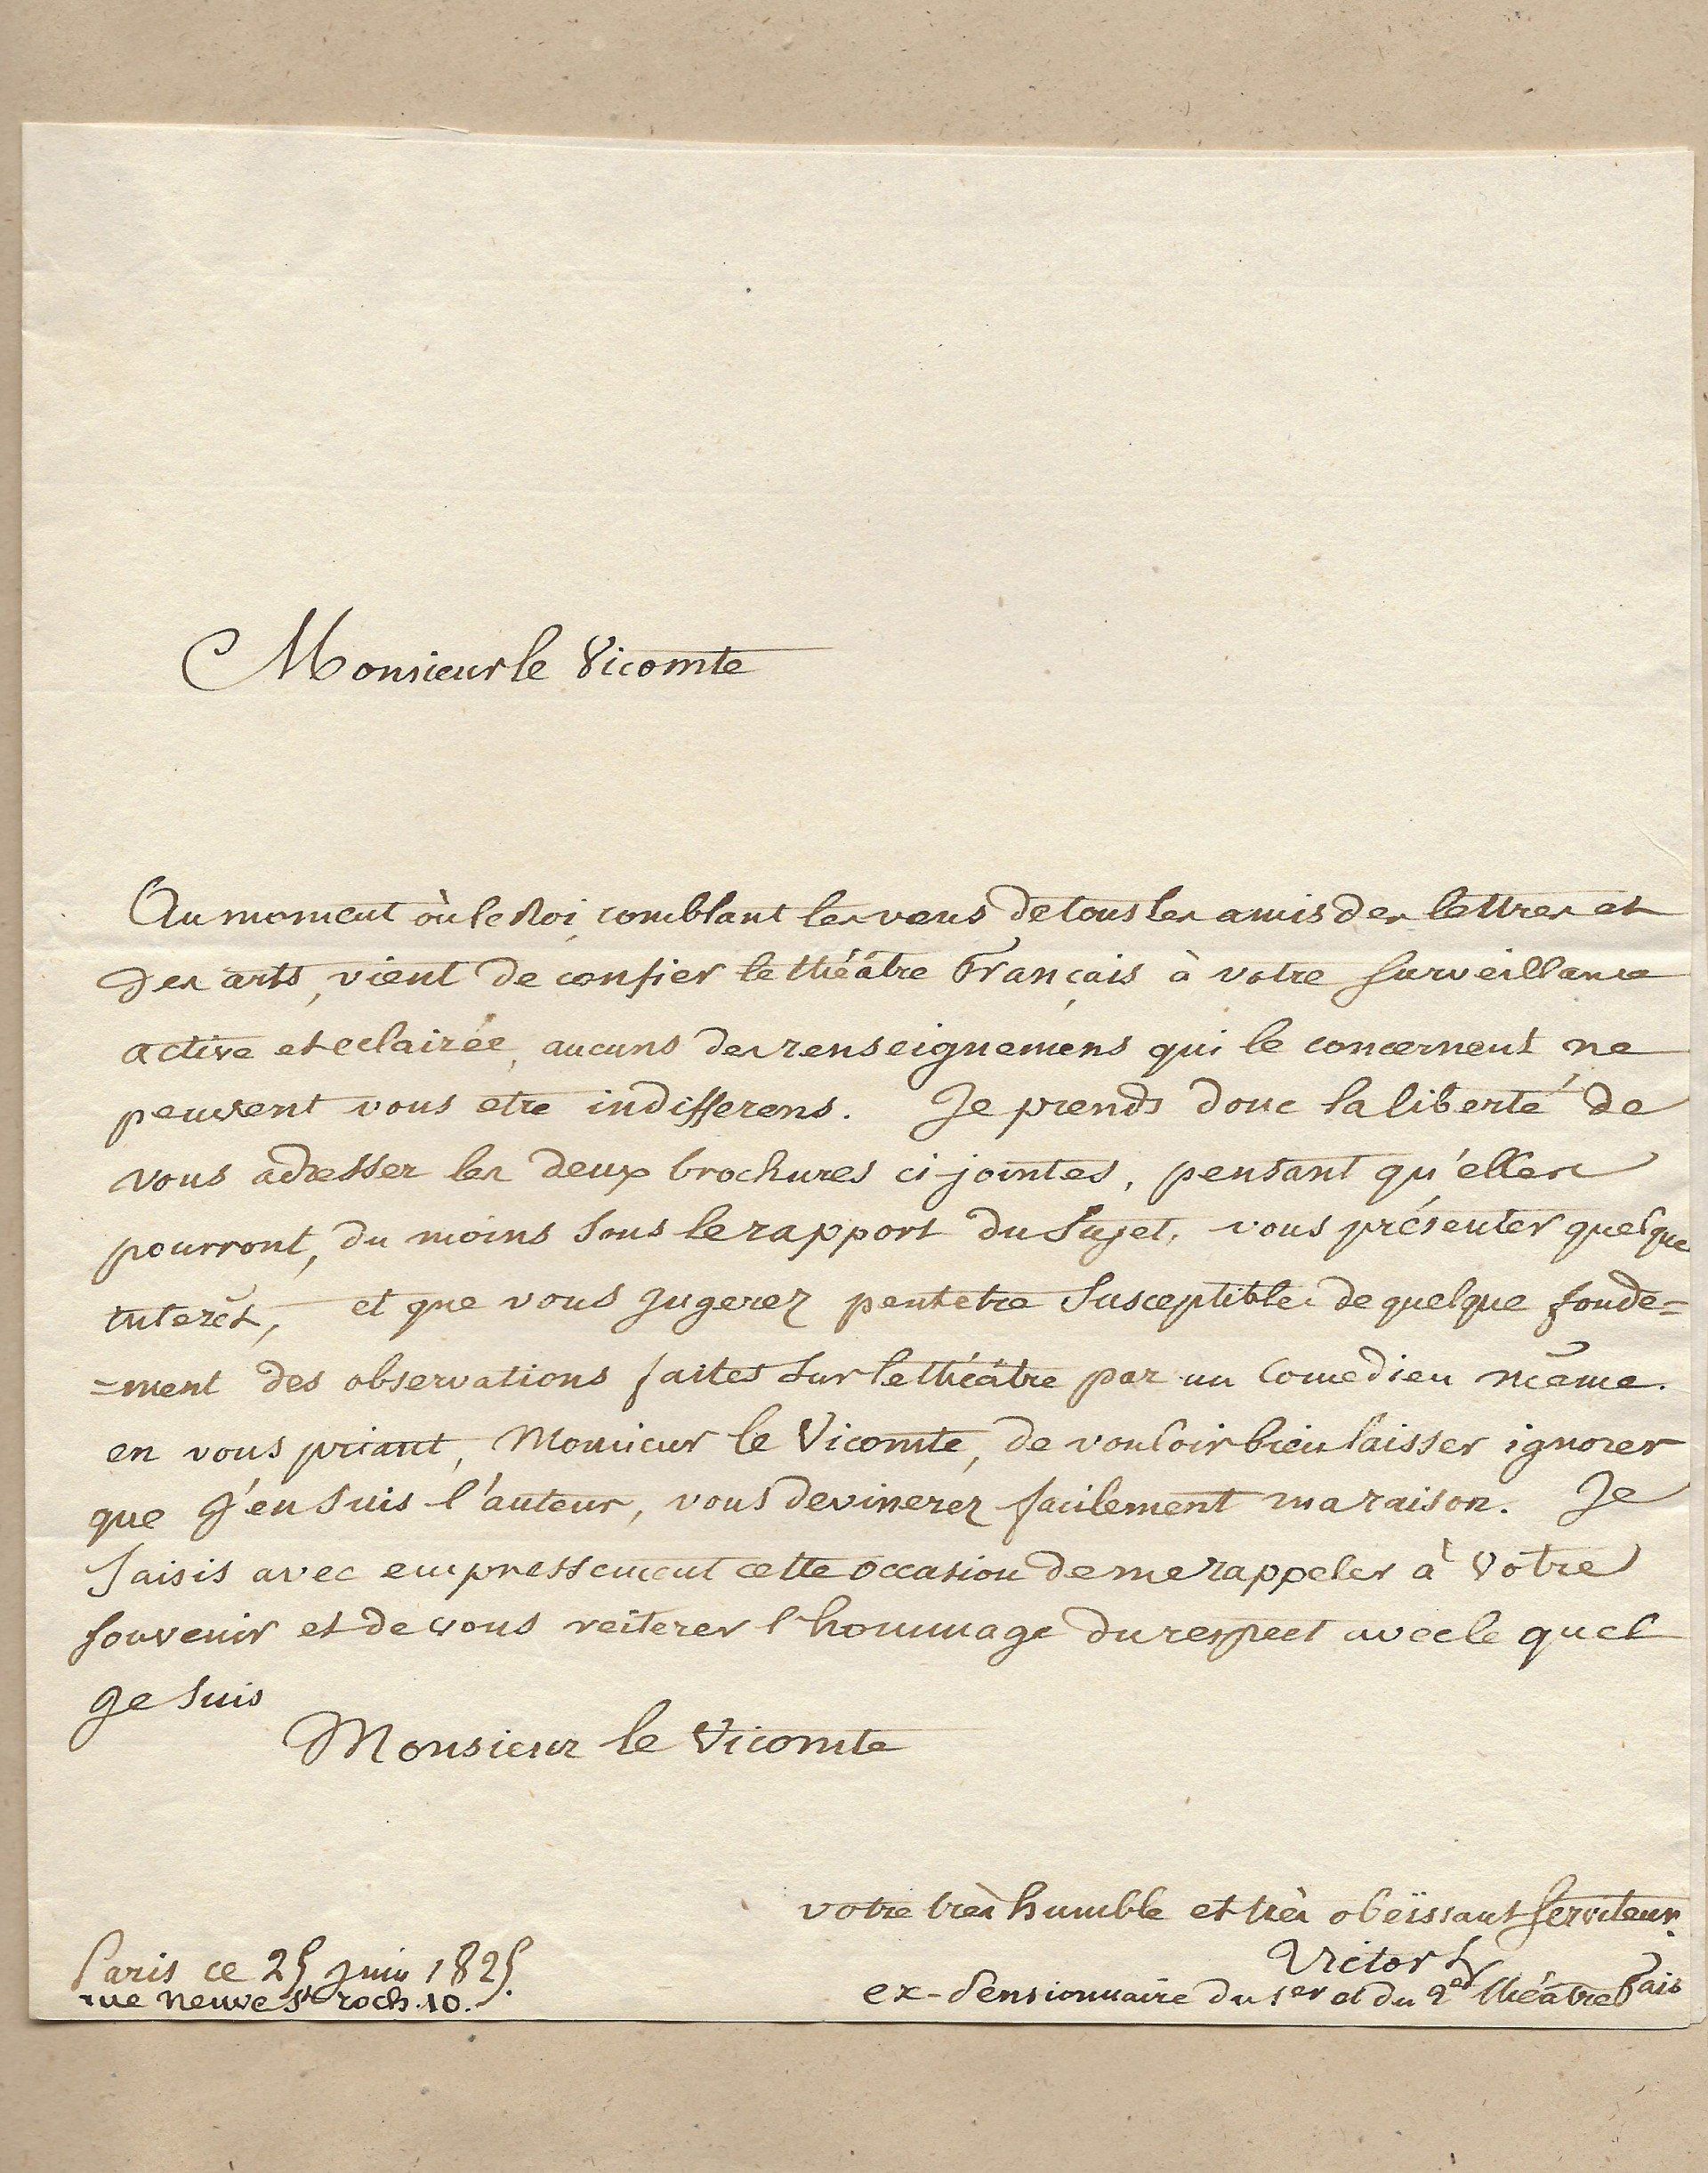 Monsieur le Vicomte
Au moment où le Roi, comblant les vœus de tous les amis des lettres et
des arts, vient de confier le théâtre Français à votre surveillance
active et eclairée, aucuns des renseignemens qui le concernent ne
peuvent vous etre indifferens. Je prends donc la liberté de
vous adresser les deux brochures ci jointes, pensant qu'elles
pourront, du moins sous le rapport du sujet, vous présenter quelque
interêt, et que vous jugerez peutetre susceptibles de quelque fonde=
=ment des observations faites sur le théâtre par un Comedien même.
en vous priant, Monsieur le Vicomte, de vouloir bien laisser ignorer
que j'en suis l'auteur, vous devinerez facilement ma raison. Je
saisis avec empressement cette occasion de me rappeler à votre
souvenir et de vous reiterer l'hommage du respect avec le quel
je suis
Monsieur le Vicomte
votre très humble et très obëissant serviteur.
Victor
Paris ce 25 juin 1825.
rue neuve St roch. 10.
ex-Pensionnaire du 1er et du 2ed théâtre Fais